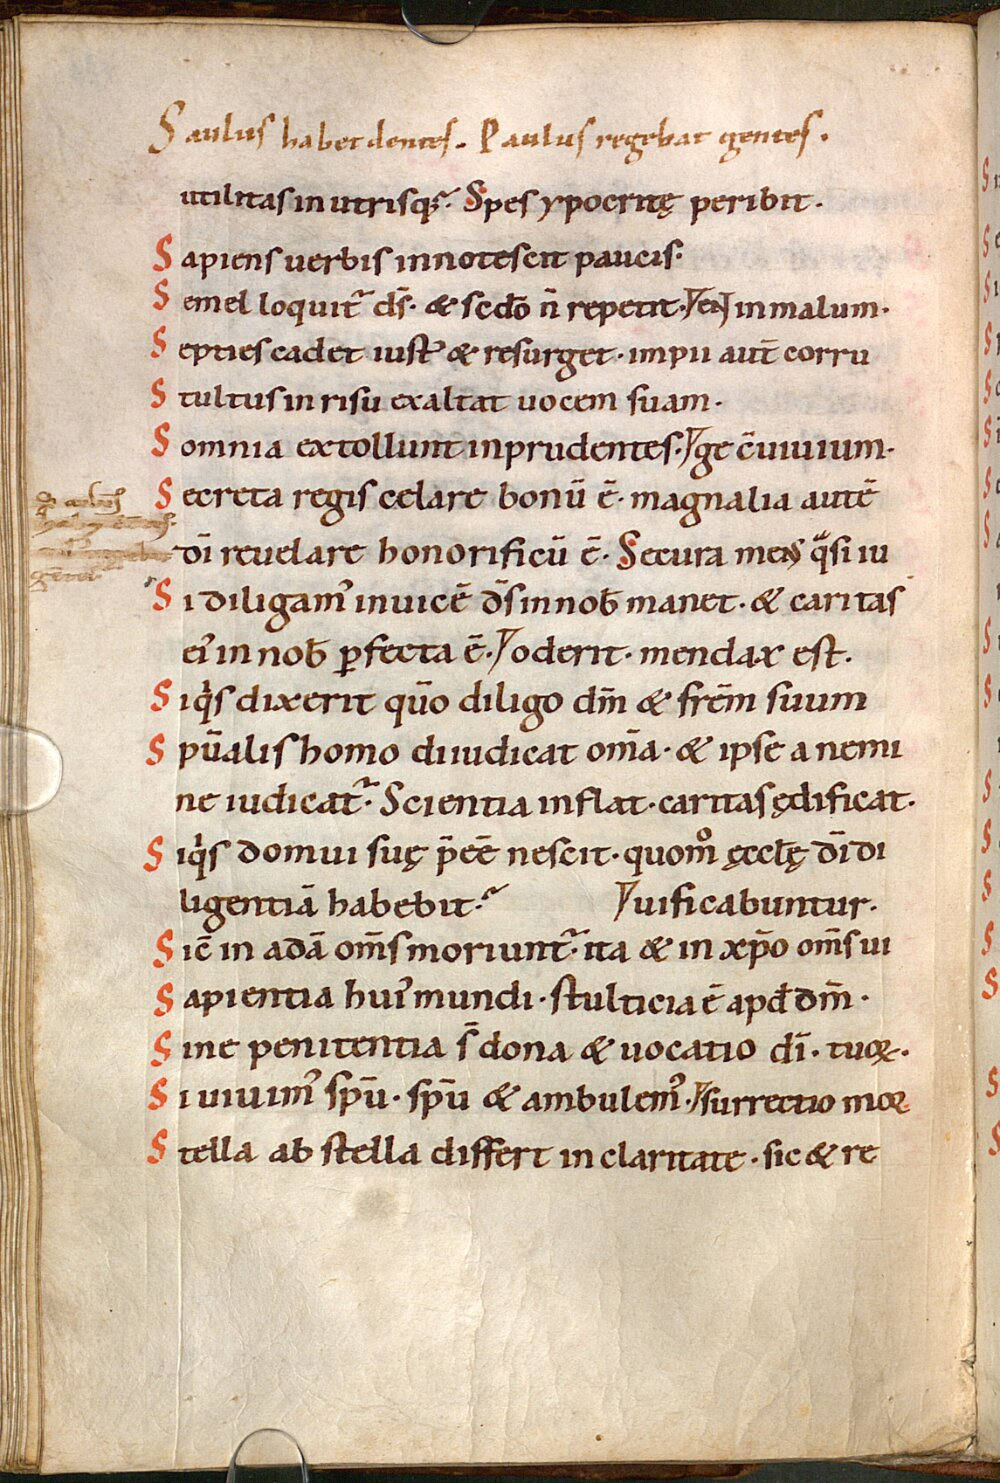 Saulus habet dentes. Paulus regebat gentes.
utilitas in utrisq;. Spes ypocritę peribit.
Sapiens uerbis innotescit paucis.
Semel loquit᷑ ds̄. & scdō n̄ repetit. in malum.
Septies cadet iust᷑ & resurget. impii aut̄ corru
Stultus in risu exaltat uocem suam.
Somnia extollunt inprudentes. ge c̄uiuium.
Secreta regis celare bonū ē. magnalia autē
dī reuelare honorificū ē. Secura mens q̄si iu
Si diligam᾽ inuicē ds̄ in nob̄ manet. & caritas
ei᾽ in nob̄ ꝑfecta ē. oderit. mendax est.
Siq̇s dixerit qūo diligo dm̄ & frēm suum
Spūalis homo diiudicat om̄a. & ipse a nemi
ne iudicat᷑. Scientia inflat. caritas ędificat.
Siq̇s domui suę p̄eē nescit. quom̊ ęcclę dī di
ligentiā habebit.᷑ uificabuntur.
Sic̄ in adā om̄s moriunt᷑. ita & in xp̄o om̄s ui
Sapientia hui᾽ mundi. stulticia ē apd̄ dm̄.
Sine penitentia s̄ dona & uocatio dī. tuoꝝ.
Si uiuim᾽ spū. spū & ambulem᾽. surrectio moꝛ
Stella ab stella differt in claritate. sic & re